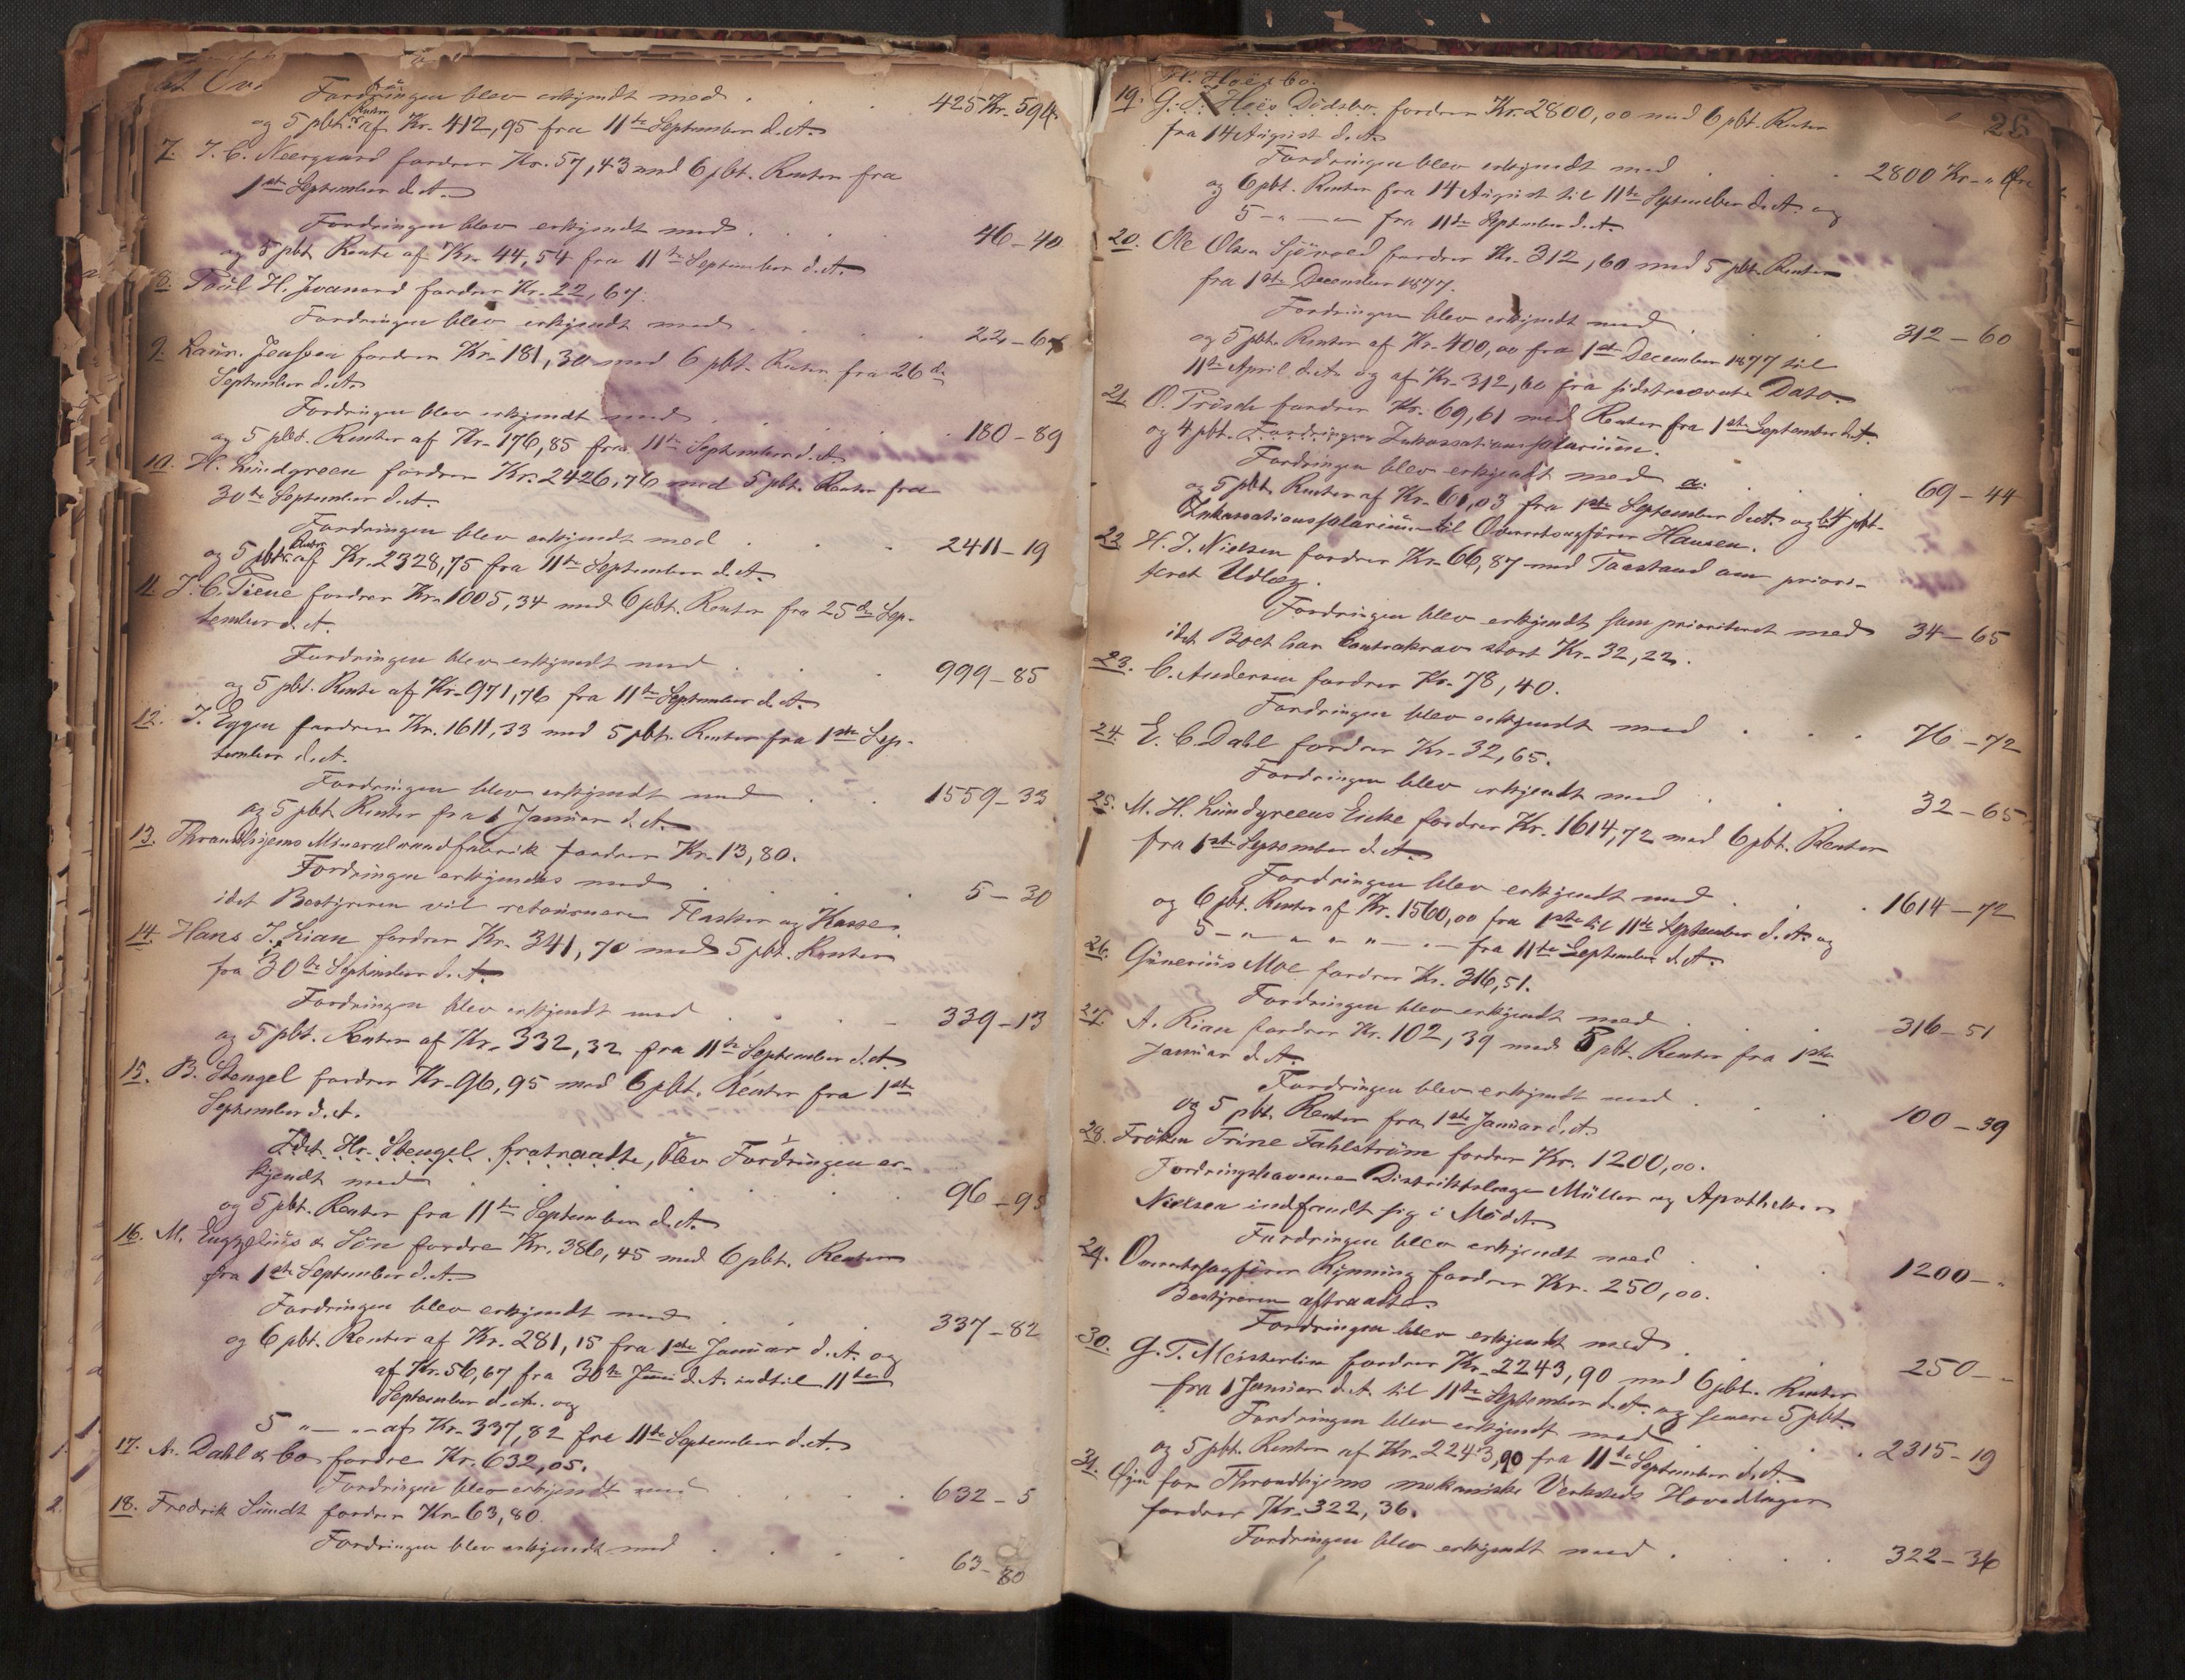 Fordringen blev erkjendt med . . . 425 Kr. 59 Ø.
og 5 pCt. Renter af Kr. 412,95 fra 11te September d. A.
7. J. C. Neergaard fordrer Kr. 57,43 med 6 pCt. Renter fra
1ste September d. A.
Fordringen blev erkjendt med . . . . 46 – 40
og 5 pCt. Rente af Kr. 44,54 fra 11te September d. A.
8. Poül H. fordrer Kr. 22,67.
Fordringen blev erkjendt med . . . . 22 – 67
9. Laur. Jenssen fordrer Kr. 181,30 med 6 pCt. Renter fra 26de
September d. A.
Fordringen blev erkjendt med . . . . 180 – 89
og 5 pCt. Renter af Kr. 176,85 fra 11te September d. A.
10. H. Lündgreen fordrer Kr. 2426,76 med 5 pCt. Renter fra
30te September d. A.
Fordringen blev erkjendt med . . . 2411 – 19
og 5 pCt. Renter af Kr. 2328,75 fra 11te September d. A.
11. J. C. Piene fordrer Kr. 1005,34 med 6 pCt. Renter fra 25de Sep-
tember d. A.
Fordringen blev erkjendt med . . . 999 – 85
og 5 pCt. Rente af Kr. 971,76 fra 11te September d. A.
12. J. Eggen fordrer Kr. 1611,33 med 5 pCt. Renter fra 1ste Sep-
tember d. A.
Fordringen blev erkjendt med . . 1559 – 33
og 5 pCt. Renter fra 1 Januar d. A.
13. Throndhjems Mineralvandfabrik fordrer Kr. 13,80.
Fordringen erkjendes med . . . . 5 – 30
idet Bestyreren vil retournere Flasker og Kasse.
14. Hans J. Lian fordrer Kr. 341,70 med 5 pCt. Renter
fra 30te September d. A.
Fordringen blev erkjendt med . . . . 339 – 13
og 5 pCt. Renter af Kr. 332,32 fra 11te September d. A.
15. B. Stengel fordrer Kr. 96,95 med 6 pCt. Renter fra 1ste
September d. A.
Idet Hr. Stengel fratraadte, blev Fordringen er-
kjendt med . . . . . . 96 – 95
og 5 pCt. Renter fra 11te September d. A.
16. M. & Sön fordre Kr. 386,45 med 6 pCt. Renter
fra 1ste September d. A.
Fordringen blev erkjendt med . . . . 337 – 82
og 6 pCt. Renter af Kr. 281,15 fra 1ste Januar d. A. og
af Kr. 56,67 fra 30te Juni d. A. indtil 11te
September d. A. og
5 " — " – af Kr. 337,82 fra 11te September d. A.
17. N. Dahl & Co fordre Kr. 632,05.
Fordringen blev erkjendt med . . . . 632 – 5
18. Fredrik Sundt fordrer Kr. 63,80.
Fordringen blev erkjendt med . . . . 63 – 80
26
H. Hoës bo.
19. G. J. Hoës Dödsbo fordrer Kr. 2800,00 med 6 pCt. Renter
fra 14 August d. A.
Fordringen blev erkjendt med . . . 2800 Kr. – " Øre
og 6 pCt. Renter fra 14 August til 11te September d. A. og
5 – " — " — fra 11te September d. A.
20. Ole Olsen Sjövold fordrer Kr. 312,60 med 5 pCt. Renter
fra 1ste December 1877.
Fordringen blev erkjendt med . . . 312 – 60
og 5 pCt. Renter af Kr. 400,00 fra 1ste December 1877 til
11te April d. A. og af Kr. 312,60 fra sidstnævnte Dato.
21. O. Prösch fordrer Kr. 69,61 med Renter fra 1ste September d. A.
og 4 pCt. Fordringen Inkassationssalarium.
Fordringen blev erkjendt med a. . . . 69 – 44
og 5 pCt. Renter af Kr. 61,03 fra 1ste September d. A. og 4 pCt.
Inkassationssalarium til Overretssagfører Hansen.
22. H. J. Nielsen fordrer Kr. 66,87 med Paastand om priori-
teret Udlæg.
Fordringen blev erkjendt som prioriteret med 34 – 65
idet Boet har Contrakrav stort Kr. 32,22.
23. C. Andersen fordrer Kr. 78,40.
Fordringen blev erkjendt med . . . 76 – 72
24. E. C. Dahl fordrer Kr. 32,65.
Fordringen blev erkjendt med . . . 32 – 65
25. M. H. Lundgreens Enke fordrer Kr. 1614,72 med 6 pCt. Renter
fra 1ste September d. A.
Fordringen blev erkjendt med . . 1614 – 72
og 6 pCt. Renter af Kr. 1560,00 fra 1ste til 11te September d. A. og
5 – " — " " " — " — fra 11te September d. A.
26. Günerius Moe fordrer Kr. 316,51.
Fordringen blev erkjendt med . . . 316 – 51
27. A. Rian fordrer Kr. 102,39 med 5 pCt. Renter fra 1ste
Januar d. A.
Fordringen blev erkjendt med . . . 100 – 39
og 5 pCt. Renter fra 1ste Januar d. A.
28. Fröken Trine Fahlström fordrer Kr. 1200,00.
Fordringshaverne Distriktslæge Müller og Apotheker
Nielsen indfandt sig i Mödet.
Fordringen blev erkjendt med . . . 1200 – "
29. Overretssagfører Rynning fordrer Kr. 250,00.
Bestyreren aftraadte.
Fordringen blev erkjendt med . . . 250 – "
30. G. T. Meisterlin fordrer Kr. 2243,90 med 6 pCt. Renter
fra 1 Januar d. A. til 11te September d. A. og senere 5 pCt.
Fordringen blev erkjendt med . . . 2315 – 19
og 5 pCt. Renter af Kr. 2243,90 fra 11te September d. A.
31. Øyen for Throndhjems mekaniske Verksteds Hovedlager
fordrer Kr. 322,36.
Fordringen blev erkjendt med . . . . 322 – 36